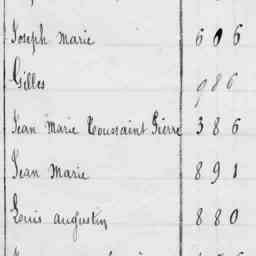 Joseph Marie 606
Gilles 986
Jean Marie Toussaint Pierre 386
Jean Marie 891
Louis augustin 880